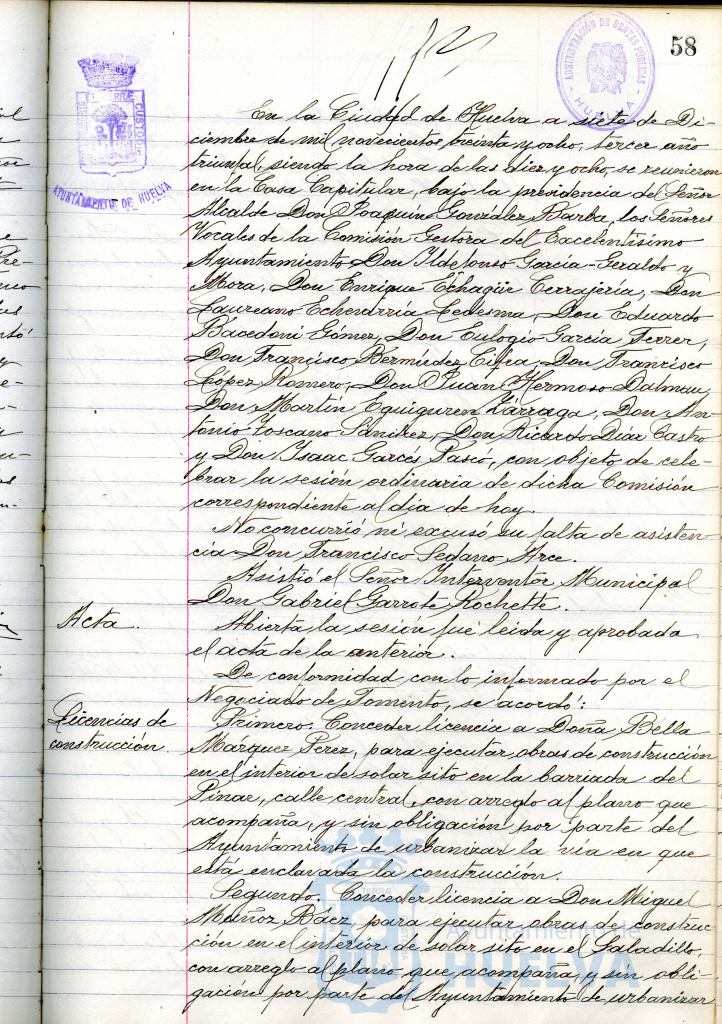 58
ADMINISTRACIÓN DE RENTAS PÚBLICAS
HUELVA
AYUNTAMIENTO DE HUELVA
En la Ciudad de Huelva a siete de Di-
ciembre de mil novecientos treinta y ocho, tercer año
triunfal, siendo la hora de las diez y ocho, se reunieron
en la Casa Capitular, bajo la presidencia del Señor
Alcalde Don Joaquín González Barba, los Señores
Vocales de la Comisión Gestora del Excelentísimo
Ayuntamiento Don Ildefonso García-Geraldo y
Mora, Don Enrique Echagüe Cerrajería, Don
Laureano Echevarría Ledesma, Don Eduardo
Bacedoni Gómez, Don Eulogio García Ferrer,
Don Francisco Bermúdez Cifra, Don Francisco
López Romero, Don Juan Hermoso Dalmau,
Don Martín Eguiguren Lárraga, Don An-
tonio Toscano Sánchez, Don Ricardo Díaz Castro
y Don Isaac Garcés Pascó, con objeto de cele-
brar la sesión ordinaria de dicha Comisión
correspondiente al día de hoy.
No concurrió ni excusó su falta de asisten-
cia Don Francisco Sedano Arce.
Asistió el Señor Interventor Municipal
Don Gabriel Garrote Rochette.
Acta.
Abierta la sesión fué leida y aprobada
el acta de la anterior.
De conformidad con lo informado por el
Negociado de Fomento, se acordó:
Licencias de
construcción.
Primero. Conceder licencia a Doña Bella
Márquez Perez, para ejecutar obras de construcción
en el interior de solar sito en la barriada del
Pinar, calle central, con arreglo al plano que
acompaña, y sin obligación por parte del
Ayuntamiento de urbanizar la via en que
está enclavada la construcción.
Segundo. Conceder licencia a Don Miguel
Muñoz Báez, para ejecutar obras de construc-
ción en el interior de solar sito en el Saladillo,
con arreglo al plano que acompaña, y sin obli-
gación por parte del Ayuntamiento de urbanizar
Ayuntamiento de
HUELVA